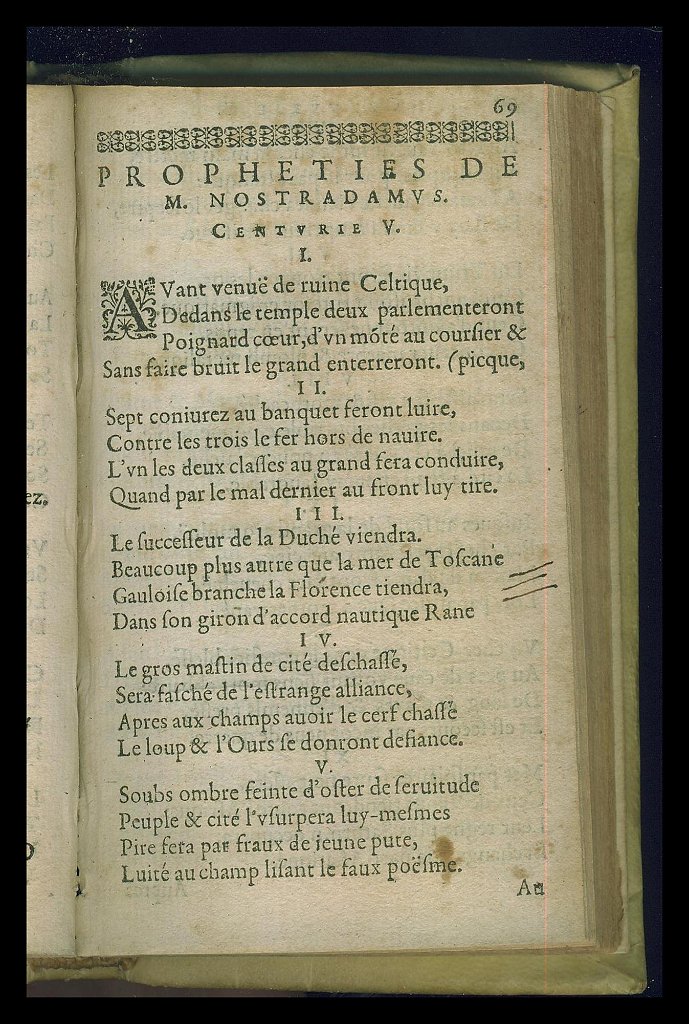 69
PROPHETIES DE
M. NOSTRADAMVS.
CENTVRIE V.
I.
AVant venuë de ruine Celtique,
Dedans le temple deux parlementeront
Poignard cœur, d'vn môté au courſier &
Sans faire bruit le grand enterreront. (picque,
II.
Sept coniurez au banquet feront luire,
Contre les trois le fer hors de nauire.
L'vn les deux claſſes au grand fera conduire,
Quand par le mal dernier au front luy tire.
III.
Le ſucceſſeur de la Duché viendra.
Beaucoup plus autre que la mer de Toſcane
Gauloiſe branche la Florence tiendra,
Dans ſon giron d'accord nautique Rane
IV.
Le gros maſtin de cité deſchaſſé,
Sera faſché de l'eſtrange alliance,
Apres aux champs auoir le cerf chaſſé
Le loup & l'Ours ſe donront defiance.
V.
Soubs ombre feinte d'oſter de ſeruitude
Peuple & cité l'vſurpera luy-meſmes
Pire fera par fraux de ieune pute,
Luité au champ liſant le faux poëſme.
Au
ez.